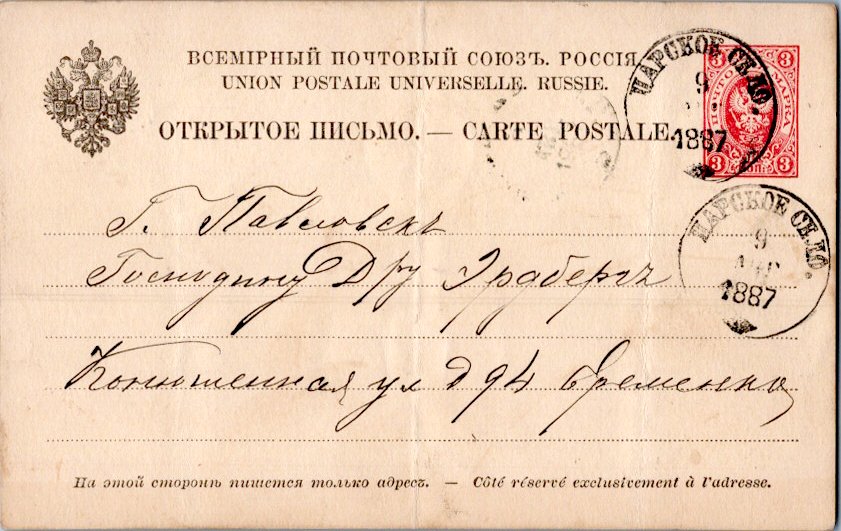 ВСЕМІРНЫЙ ПОЧТОВЫЙ СОЮЗЪ. РОССІЯ
UNION POSTALE UNIVERSELLE. RUSSIE.
ОТКРЫТОЕ ПИСЬМО. — CARTE POSTALE.
3 3
ПОЧТО МАРКА
3 3
ЦАРСКОЕ СЕЛО.
9
1887
Г. Павловскъ
ЦАРСКОЕ СЕЛО.
9
1887
Господину Д ру Эрдбергъ
Конюшенная ул д 94 Еременко
На этой сторонѣ пишется только адресъ. — Côté réservé exclusivement à l'adresse.